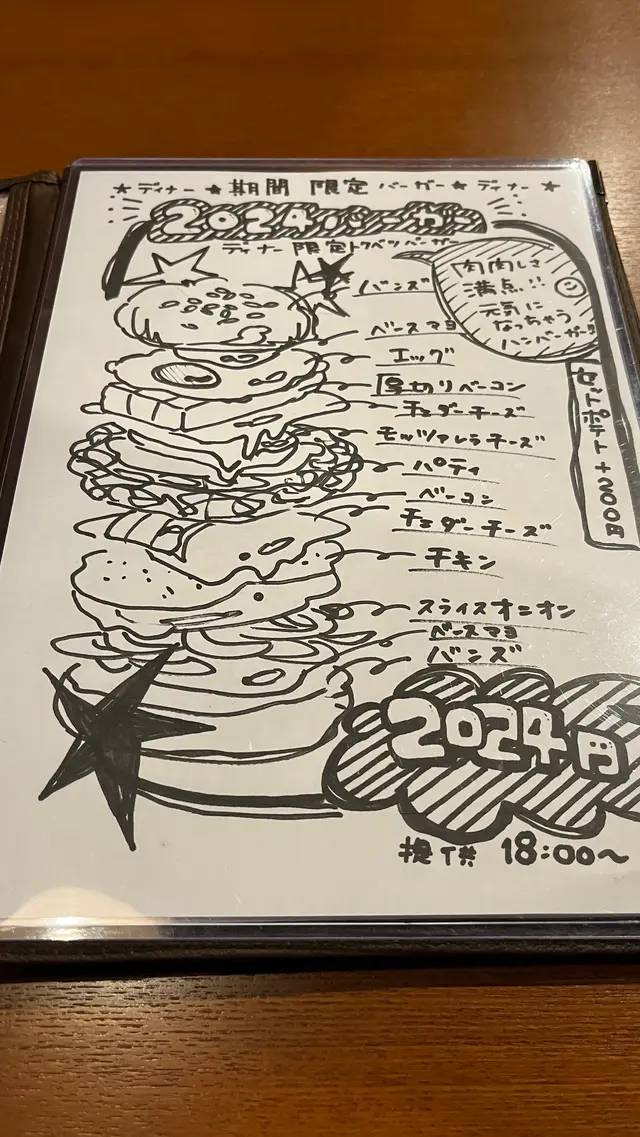 ★ディナー★期間 限定 バーガー★ディナー★
2024バーガー
ディナー限定トクベツバーガー
肉肉しさ
満点!!
元気に
なっちゃう
ハンバーガー!!
バンズ
ベースマヨ
エッグ
厚切りベーコン
チェダーチーズ
モッツァレラチーズ
パティ
ベーコン
チェダーチーズ
チキン
スライスオニオン
ベースマヨ
バンズ
セットポテト+200円
2024円
提供 18:00〜